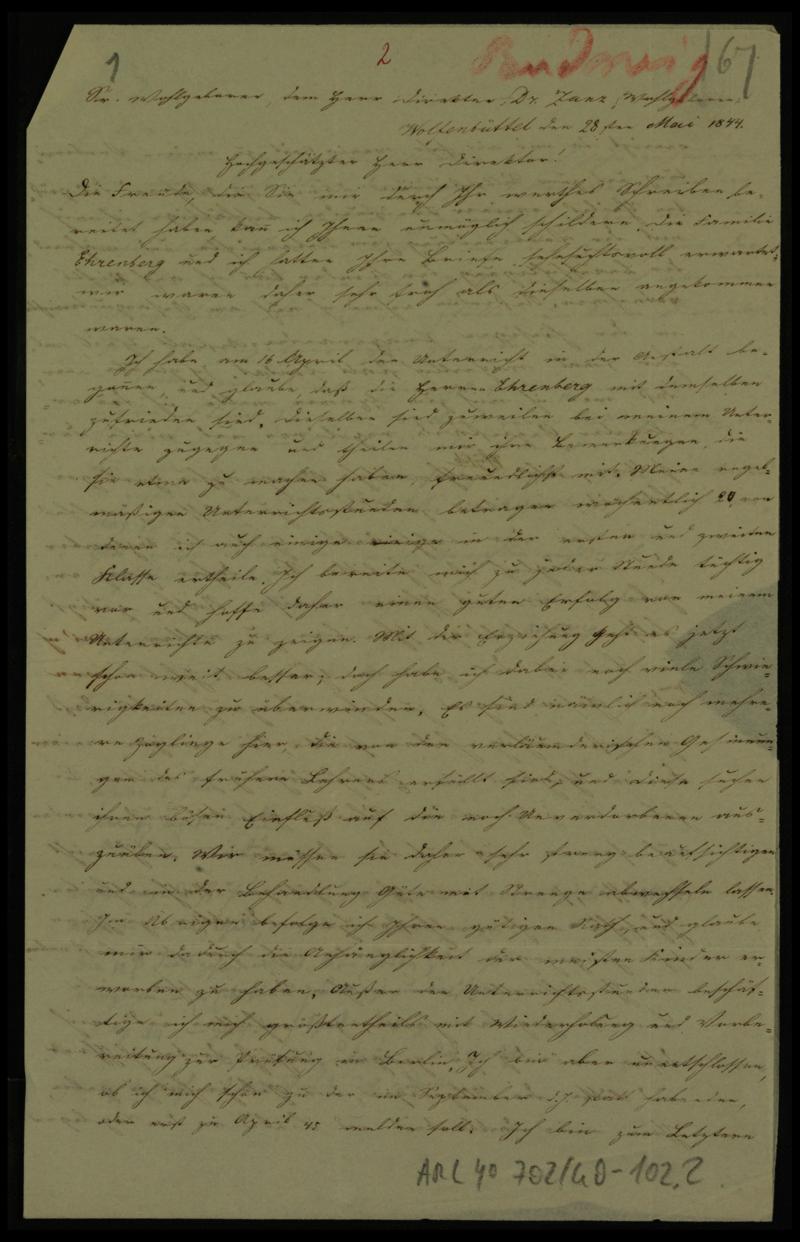 1 2 Budwig 67
Sr. Wohlgeboren, dem Herrn Direktor Dr. Zunz, Wohlgeboren.
Wolfenbüttel den 28sten Mai 1844.
Hochgeschätzter Herr Direktor!
Die Freude, die Sie mir durch Ihr werthes Schreiben be-
reitet haben kan̄ ich Ihnen unmöglich schildern. Die Familie
Ehrenberg und ich hatten Ihre Briefe sehnsuchtsvoll erwartet,
wir waren daher sehr froh als dieselben angekommen
waren.
Ich habe am 16 April den Unterricht in der Anstalt be-
gonnen, und glaube, daß die Herren Ehrenberg mit demselben
zufrieden sind. Dieselben sind zuweilen bei meinem Unter-
richte zugegen und theilen mir ihre Bemerkungen, die
sie etwa zu machen haben, freundlichst mit. Meine regel-
mäßigen Unterrichtsstunden betragen wöchentlich 20, von
denen ich auch einige in der ersten und zweiten
Klasse ertheile. Ich bereite mich zu jeder Stunde tüchtig
vor und hoffe daher einen guten Erfolg von meinem
Unterrichte zu zeigen. Mit der Erziehung geht es jetzt
schon weit besser; doch habe ich dabei noch viele Schwie-
rigkeiten zu überwinden. Es sind nämlich noch mehre-
re Zöglinge hier, die von den verläumderischen Gesinnun-
gen des frühern Lehrers erfüllt sind, und diese suchen
ihren bösen Einfluß auf die noch Unverdorbenen aus-
zuüben. Wir müssen sie daher sehr streng beaufsichtigen
und in der Behandlung Güte mit Strenge abwechseln lassen.
Im Übrigen befolge ich Ihren gütigen Rath, und glaube
mir dadurch die Anhänglichkeit der meisten Kinder er-
worben zu haben. Außer den Unterrichtsstunden beschäf-
tige ich mich größtentheils mit Wiederholung und Vorbe-
reitung zur Prüfung in Berlin. Ich bin aber unentschlossen,
ob ich mich schon zu der im September d.J. statt habenden,
oder erst zu April 45 melden soll. Ich bin zum Letztern